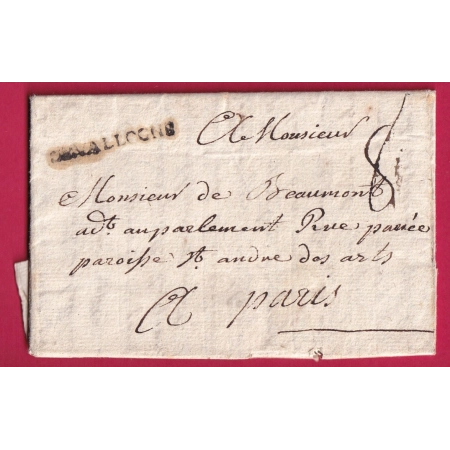 DE VALLOGNE
A Monsieur
8
Monsieur de Beaumont
adt. au parlement Rue pavée
paroisse st. andre des arts
A paris